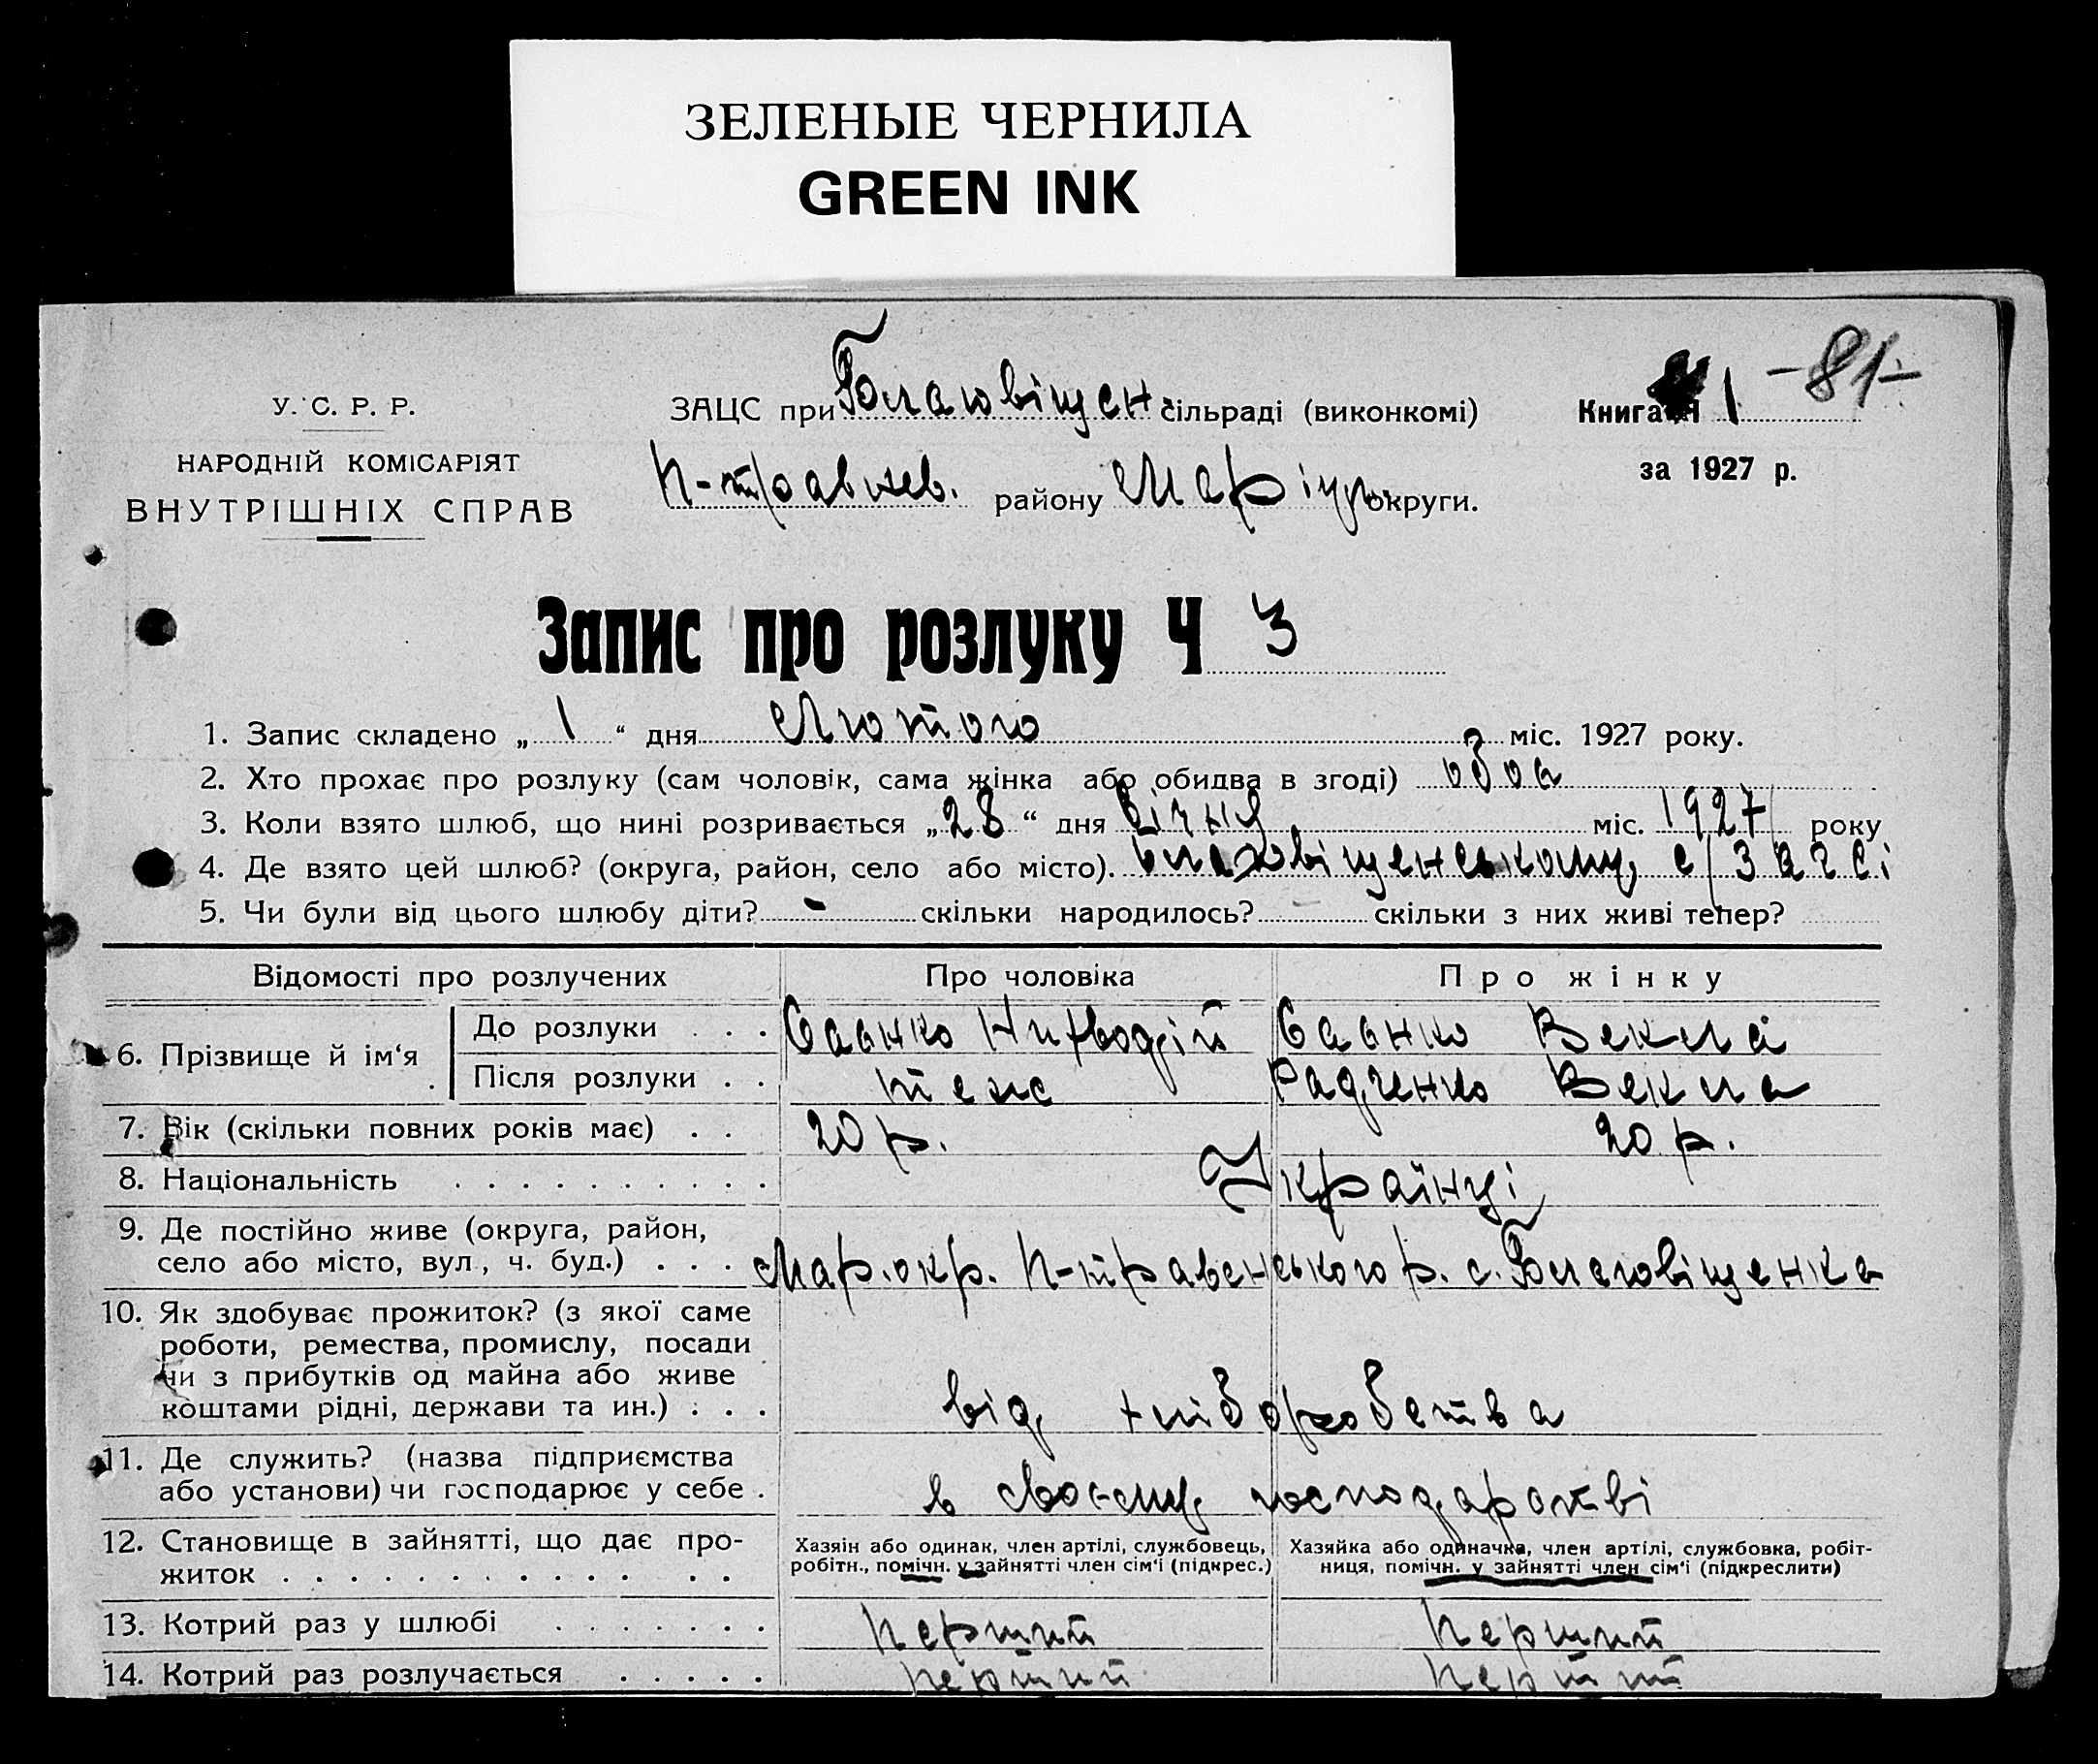 ЗЕЛЕНЫЕ ЧЕРНИЛА
GREEN INK
-81-
У. С. Р. Р.
НАРОДНІЙ КОМІСАРІЯТ
ВНУТРІШНІХ СПРАВ
ЗАЦС при Благовіщен. сільраді (виконкомі)
П-травнев. району Маріуп. округи.
Книга Ч 1
за 1927 р.
Запис про розлуку Ч 3
1. Запис складено „ 1 “ дня Лютого міс. 1927 року.
2. Хто прохає про розлуку (сам чоловік, сама жінка або обидва в згоді) обоє
3. Коли взято шлюб, що нині розривається „ 28 “ дня Січня міс. 1927 року
4. Де взято цей шлюб? (округа, район, село або місто). Благовіщенському с/загсі
5. Чи були від цього шлюбу діти? - скільки народилось? - скільки з них живі тепер?
Відомості про розлучених Про чоловіка Про жінку
6. Прізвище й ім‘я
До розлуки . . . Сланко Векла
Після розлуки . . теж Радченко Векла
7. Вік (скільки повних років має) . . 20 р. 20 р.
8. Національність . . . . . . . . . . Українці
9. Де постійно живе (округа, район,
село або місто, вул., ч. буд.) . . . Мар. окр. П-травенського р. с. Благовіщенка
10. Як здобуває прожиток? (з якої саме
роботи, ремества, промислу, посади
чи з прибутків од майна або живе
коштами рідні, держави та ин.) . . . від хліборобства
11. Де служить? (назва підприємства
або установи) чи господарює у себе . в своєму господарстві
12. Становище в зайнятті, що дає про-
житок . . . . . . . . . . . . .
Хазяін або одинак, член артілі, службовець,
робітн., помічн. у зайнятті член сім‘ї (підкрес.)
Хазяйка або одиначка, член артілі, службовка, робіт-
ниця, помічн. у зайнятті член сім‘ї (підкреслити)
13. Котрий раз у шлюбі . . . . . . . Перший Перший
14. Котрий раз розлучається . . . . . Перший Перший